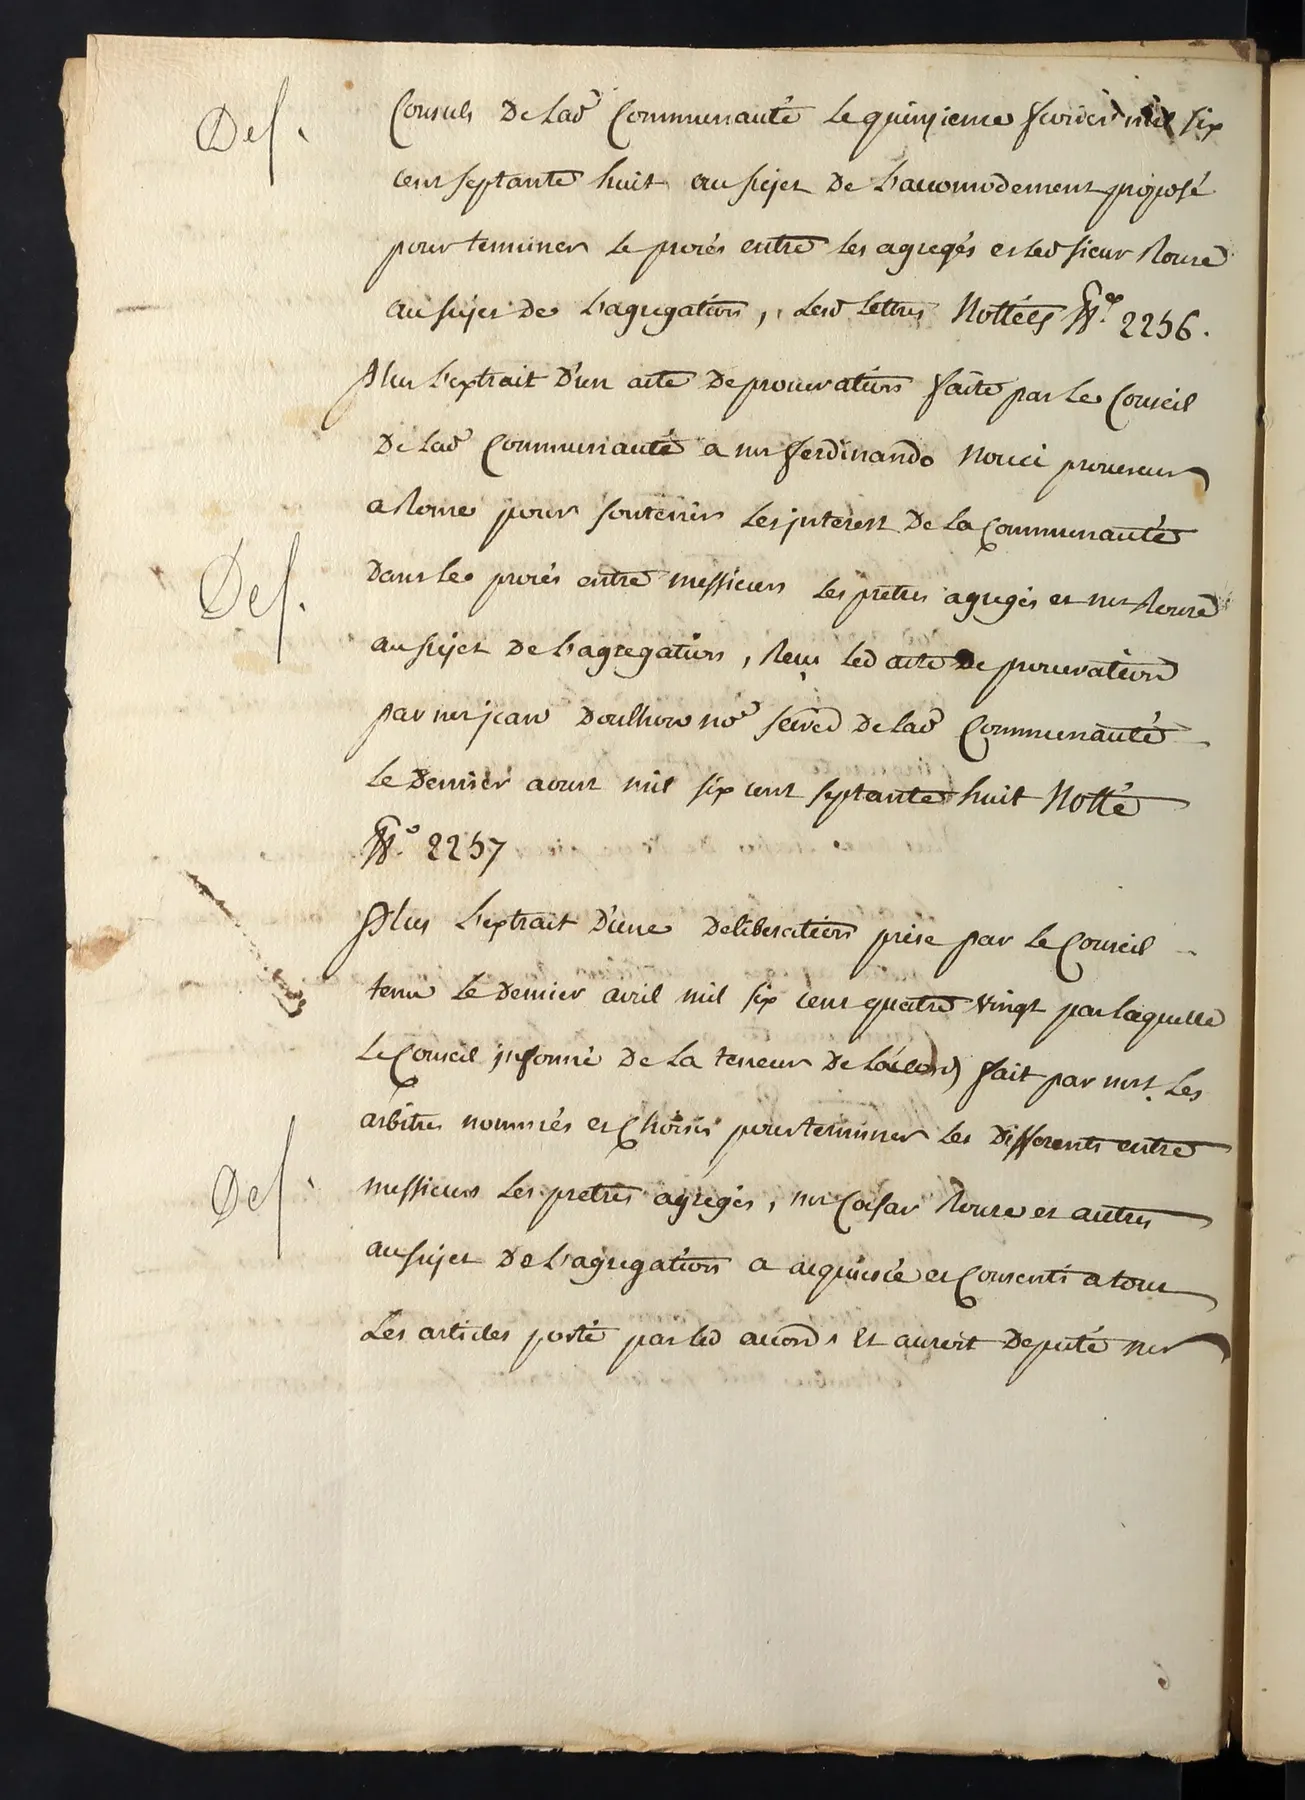 Def.
Consuls De lad^e Communauté le quinzieme fevrier mil six
cent septante huit au sujet De l'accomodement proposé
pour terminer le procés entre les agregés et led sieur Roure
au sujet De l'agregation, lesd lettres Nottées N^os 2256.
Plus l'extrait D'un acte De procuration faite par le Conseil
De lad^e Communauté a mr ferdinando Nouci procureur
a Rome pour soutenir les interest De la Communauté
Def.
Dans le procés entre messieurs les pretres agregés et mr Roure
au sujet De l'agregation, Reçu led acte De procuration
par mr jean Doulhon no^e secred De lad^e Communauté
le Dernier aoust mil six cent septante huit Notté
N^o. 2257
Plus l'extrait D'une Deliberation prise par le Conseil
tenu le Dernier avril mil six cent quatre vingt par laquelle
le Conseil informé De la teneur De l'acord fait par mrs. les
arbitres nommés et Choisis pour terminer les Differents entre
Def.
messieurs les pretres agregés, mr Cæsar Roure et autres
au sujet De l'agregation a acquiescé et Consenti a tous
les articles porté par led accord, et auroit Deputé mr